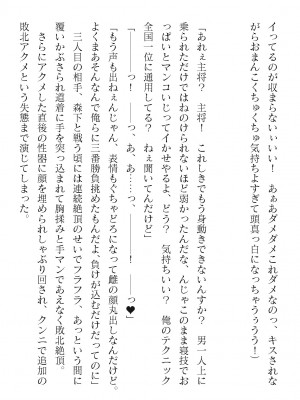 イってるのが収まらないんです！　ああダメダメこれダメなのっ、キスされな
がらおまんこくちゅくちゅ気持ちよすぎて頭真っ白になっちゃうぅうう！
なっちゃうぅう！）
「あれぇ主将？　主将！　これしきでもう身動きできないんすか？　男一人上に
乗られただけではねのけられないほど弱かったんすねえ、んじゃこのまま寝技でお
っぱいとマンコいじってイかせやるよ、どう？　気持ちいい？　俺のテクニック
全国一位に通用してる？　ねぇ聞いてんだけど」
「――っ！　――っ、あ、あぁ……っ、――っ♥」
「もう声も出ねぇんじゃん、表情もぐちゃどろになって雌の顔丸出しなんだけど。
よくまあそんなんで俺らに三番勝負挑めたもんだよ、負けが込むだけだってのに」
三人目の相手、森下と戦う頃には連続絶頂のせいでフラフラ、あっという間に
覆いかぶさられ道着に手を突っ込まれて胸揉みと手マンであえなく敗北絶頂。
さらにアクメした直後の性器に顔を埋められしゃぶり回され、クンニで追加の
敗北アクメという失態まで演じてしまった。